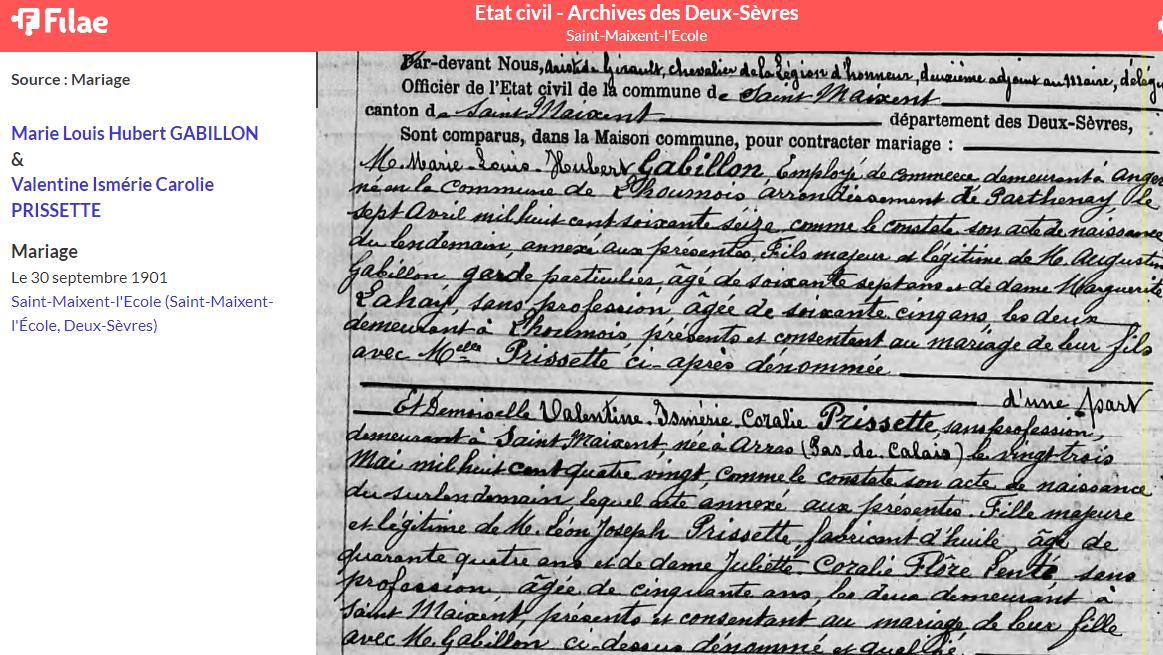 Filae
Etat civil - Archives des Deux-Sèvres
Saint-Maixent-l'Ecole
Source : Mariage
Marie Louis Hubert GABILLON
&
Valentine Ismérie Carolie
PRISSETTE
Mariage
Le 30 septembre 1901
Saint-Maixent-l'Ecole (Saint-Maixent-
l'École, Deux-Sèvres)
Par-devant Nous, Girault, chevalier de la Légion d'honneur, deuxième adjoint au Maire, délég
Officier de l'Etat civil de la commune de Saint Maixent
canton de Saint Maixent département des Deux-Sèvres,
Sont comparus, dans la Maison commune, pour contracter mariage :
M. Marie-Louis-Hubert Gabillon, Employé de commerce demeurant à Anger
né en la Commune de Lhoumois arrondissement de Parthenay, le
sept Avril mil huit cent soixante seize, comme le constate son acte de naissance
du lendemain, annexé aux présentes, Fils majeur et légitime de M. Augustin
Gabillon, garde particulier, âgé de soixante sept ans et de dame Marguerite
Lahay, sans profession, âgée de soixante cinq ans, les deux
demeurant à Lhoumois, présents et consentant au mariage de leur fils
avec Melle Prissette ci-après dénommée
d'une part
Et Demoiselle Valentine-Ismérie-Coralie Prissette, sans profession,
demeurant à Saint Maixent, née à Arras (Pas-de-Calais) le vingt trois
Mai mil huit cent quatre vingt, comme le constate son acte de naissance
du surlendemain, lequel acte annexé aux présentes. Fille majeure
et légitime de M. Léon Joseph Prissette, fabricant d'huile, âgé de
quarante quatre ans et de dame Juliette Coralie Flore sans
profession, âgée de cinquante ans, les deux demeurant à
Saint Maixent, présents et consentant au mariage de leur fille
avec M. Gabillon ci-dessus dénommé et qualifié.